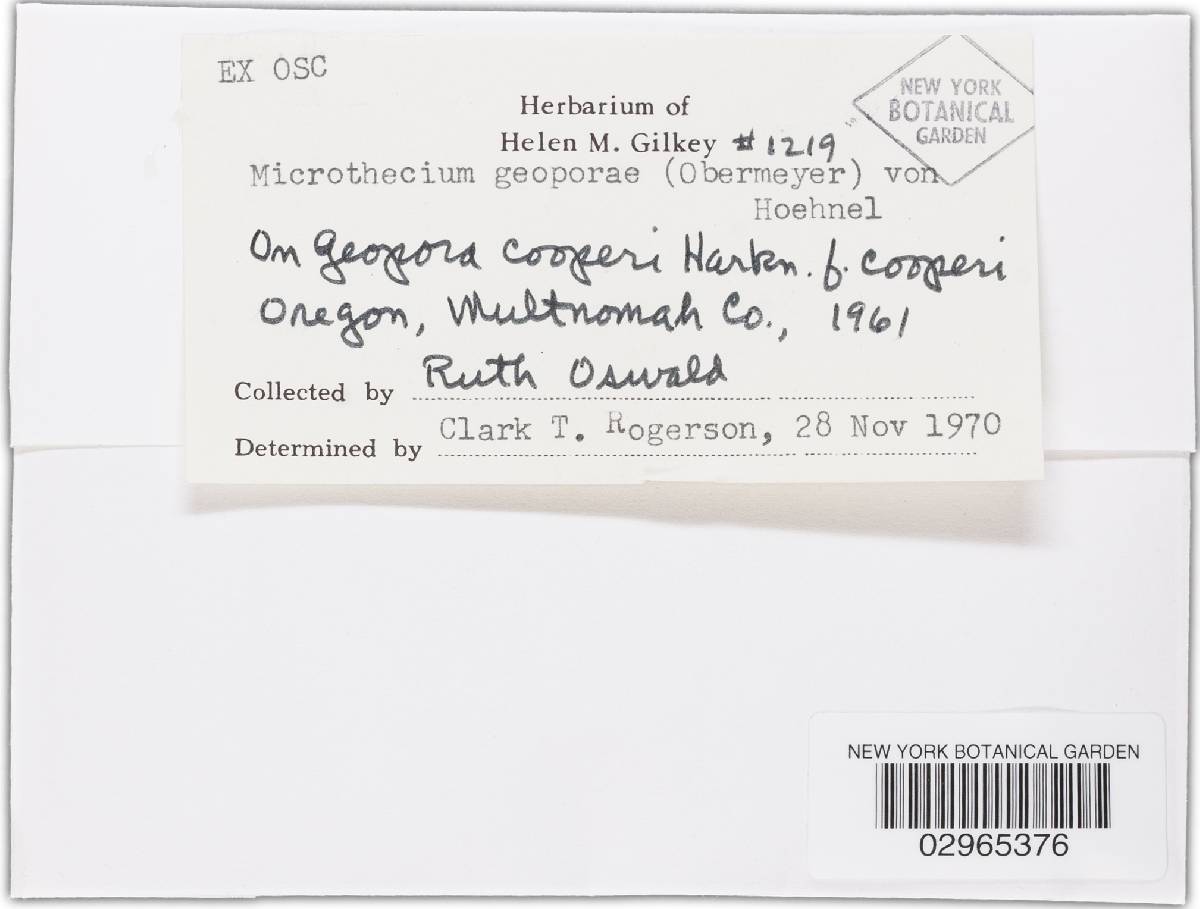 EX OSC
NEW YORK
BOTANICAL
GARDEN
Herbarium of
Helen M. Gilkey #1219
Microthecium geoporae (Obermeyer) von
Hoehnel
On Geopora cooperi Harkn. f. cooperi
Oregon, Multnomah Co., 1961
Collected by Ruth Oswald
Determined by Clark T. Rogerson, 28 Nov 1970
NEW YORK BOTANICAL GARDEN
02965376